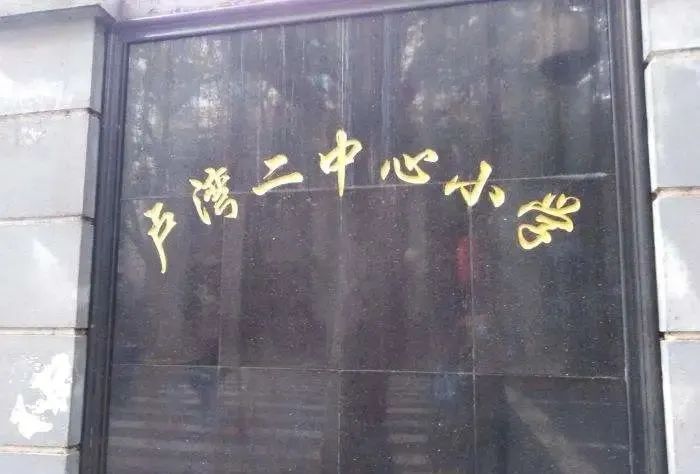 卢湾二中心小学